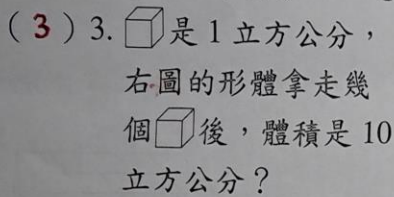 (3) 3. 是 1 立方公分，
右圖的形體拿走幾
個後，體積是 10
立方公分？